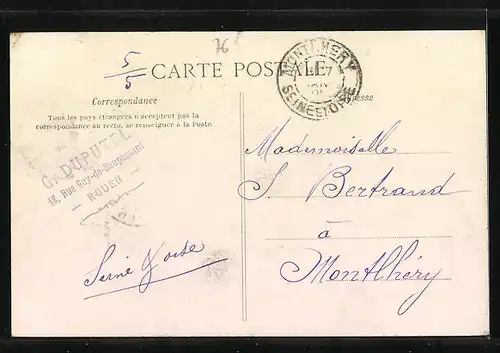 76
5/5
CARTE POSTALE
MONTLHERY
SEINE ET OISE
Correspondance
Tous les pays étrangers n'acceptent pas la
correspondance au recto, se renseigner à la Poste
G. DUPUTEL
Rue Guy-de-Maupassant
ROUEN
Mademoiselle
S. Bertrand
à
Montlhéry
Seine & oise